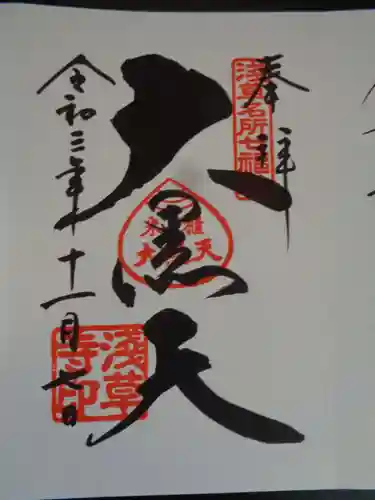 奉拝
浅草名所七福神
大黒天
米権大天
令和三年十一月七日
浅草寺印